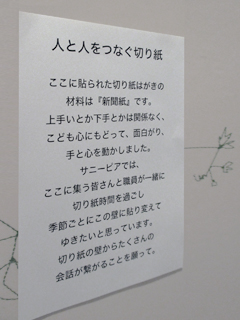 人と人をつなぐ切り紙
ここに貼られた切り紙はがきの
材料は『新聞紙』です。
上手いとか下手とかは関係なく、
こども心にもどって、面白がり、
手と心を動かしました。
サニーピアでは、
ここに集う皆さんと職員が一緒に
切り紙時間を過ごし
季節ごとにこの壁に貼り変えて
ゆきたいと思っています。
切り紙の壁からたくさんの
会話が繋がることを願って。